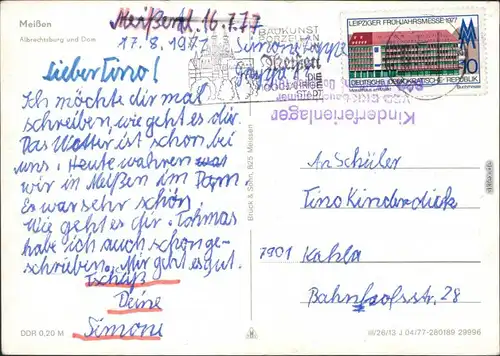 Meißen
Albrechtsburg und Dom
Meißen d. 16.7.77
17.8.1977
Simone
Gruppe 1
BAUKUNST
PORZELLAN
Meißen
DIE
STADT
LEIPZIGER FRÜHJAHRSMESSE 1977
10
DEUTSCHE DEMOKRATISCHE REPUBLIK
Kinderferienlager
Lieber Tino!
Ich möchte dir mal
schreiben wie geht es dir.
Das Wetter ist schon bei
uns. Heute wahren was
wir in Meißen im Dom
Es war sehr schön.
Wie geht es dir. Tohmas
habe ich auch schon ge-
schrieben. Mir geht es gut.
Tschüß
Deine
Simone
An Schüler
Tino Kinderdick
7901 Kahla
Bahnhofsstr. 28
Brück & Sohn, 825 Meissen
DDR 0,20 M
III/26/13 J 04/77-280189 29996